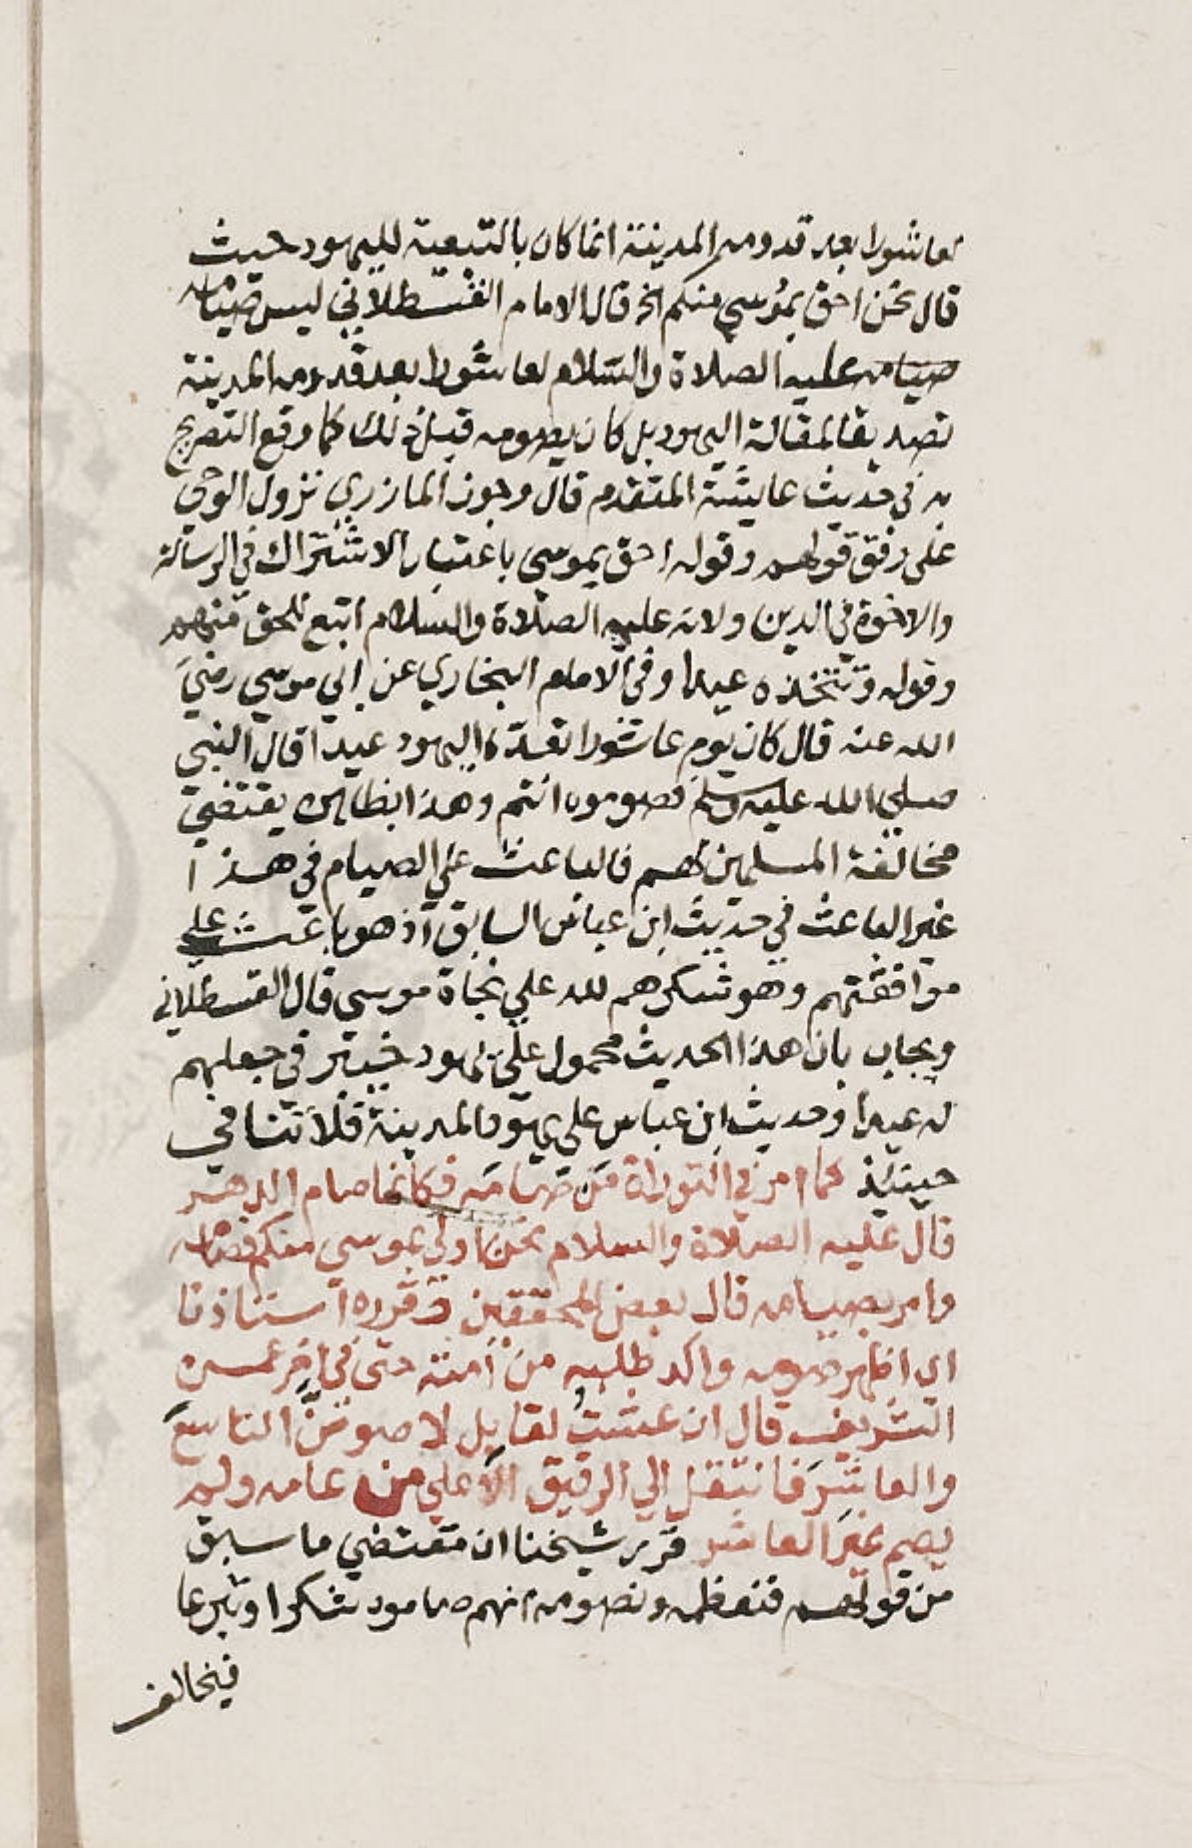 لعاشورا بعد قدومه المدينة انما كان بالتبعية لليهود حيث
قال نحن احق بموسي منكم الخ قال الامام القسطلاني ليس صيامه
صيامه عليه الصلاة والسلام لعاشورا بعد قدومه المدينة
تصديقا لمقالة اليهود بل كان يصومه قبل ذلك كما وقع التصريح
به في حديث عايشة المتقدم قال وجوز المازري نزول الوحي
علي وفق قولهم وقوله احق بموسي باعتبار الاشتراك في الرسالة
والاخوة في الدين ولانه عليه الصلاة والسلام اتبع للحق منهم
وقوله وتتخذه عيدا وفي الامام البخاري عن ابي موسي رضي
الله عنه قال كان يوم عاشورا تعده اليهود عيدا قال النبي
صلي الله عليه وسلم فصوموه انتم وهذا بظاهره يقتضي
مخالفة المسلمين لهم فالباعث علي الصيام في هذا
غير الباعث في حديث ابن عباس السابق اذ هو باعث علي
موافقتهم وهو شكرهم لله علي نجاة موسي قال القسطلاني
ويجاب بان هذا الحديث محمول علي يهود خيبر في جعلهم
له عيدا وحديث ابن عباس علي يهود المدينة فلا تنافي
حينيذ كما امر في التوراة من صامه فكانما صام الدهر
قال عليه الصلاة والسلام نحن اولي بموسي منكم فصامه
وامر بصيامه قال بعض المحققين وقرره استاذنا
اي اظهر صومه واكد طلبه من امته حتي في اخر عمره
الشريف قال ان عشت لقابل لاصومن التاسع
والعاشر فانتقل الي الرفيق الاعلي من عامه ولم
يصم غير العاشر قرر شيخنا ان مقتضي ما سبق
من قولهم فنعظمه ونصومه انهم صاموه شكرا وتبرعا
فيخالف